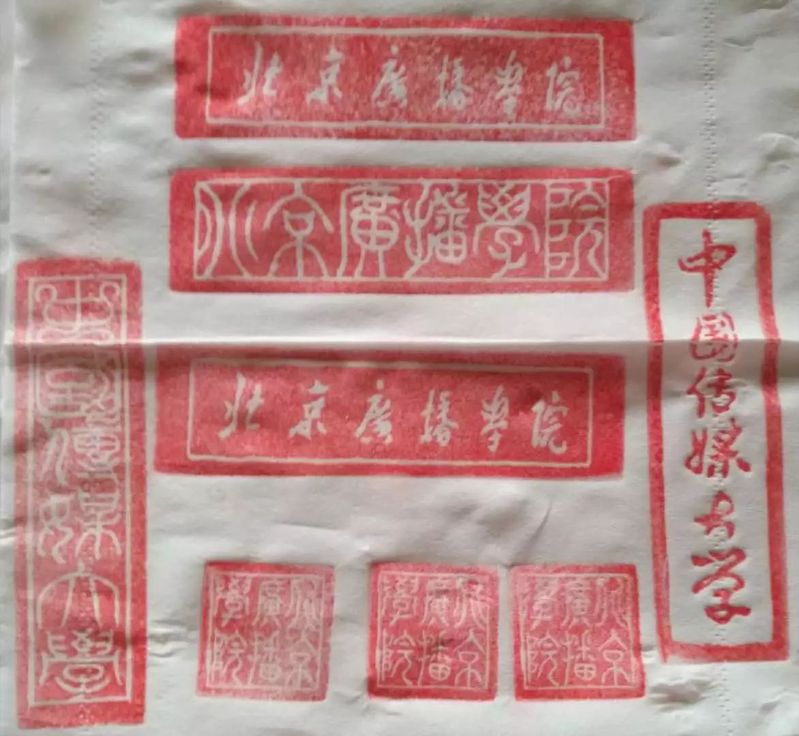 北京廣播學院
北京廣播學院
北京廣播学院
中國傳媒大學
中国传媒大学
北京廣播學院
北京廣播學院
北京廣播學院